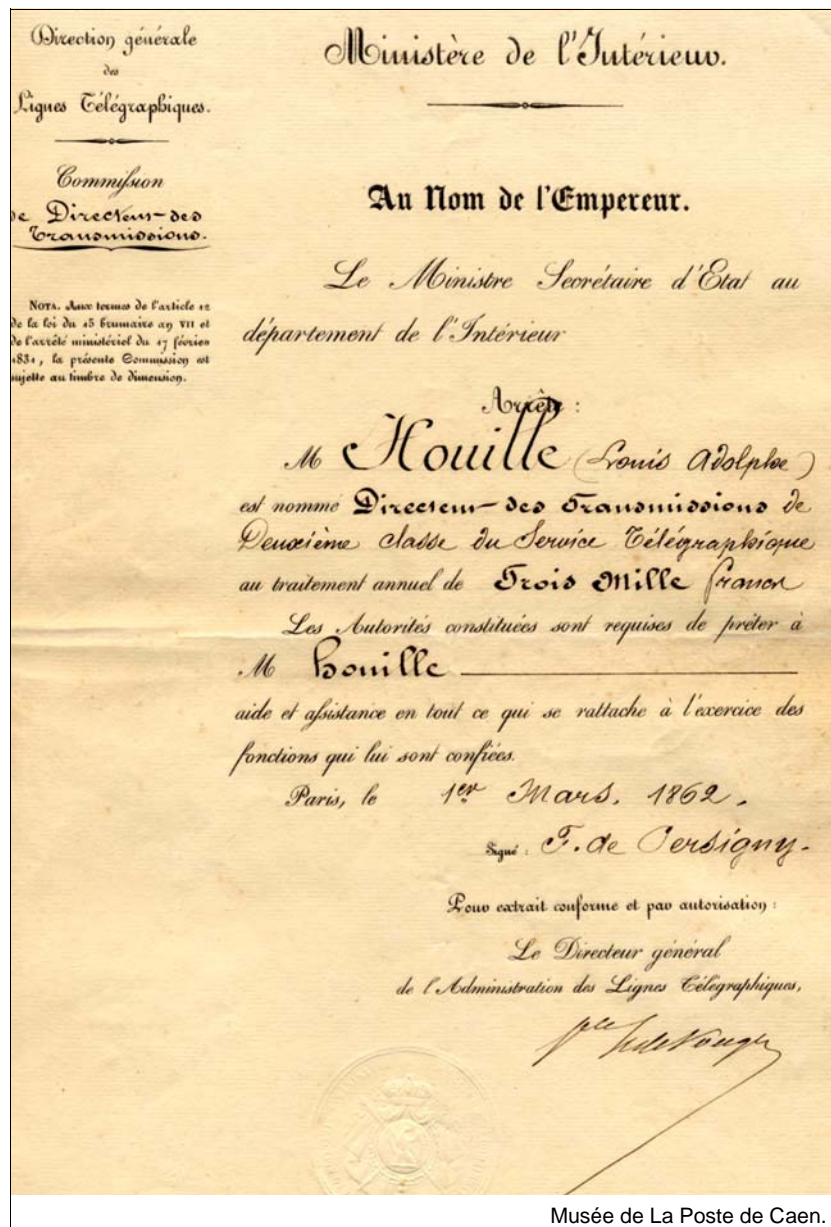 Direction générale
des
Lignes Télégraphiques.
Commission
de Directeur des
Transmissions.
NOTA. Aux termes de l'article 12
de la loi du 13 brumaire an VII et
de l'arrêté ministériel du 17 février
1831, la présente Commission est
sujette au timbre de dimension.
Ministère de l'Intérieur.
Au Nom de l'Empereur.
Le Ministre Secrétaire d'État au
département de l'Intérieur
Arrête :
M Houille (Louis Adolphe)
est nommé Directeur des Transmissions de
Deuxième classe du Service Télégraphique
au traitement annuel de Trois Mille francs
Les Autorités constituées sont requises de prêter à
M houille
aide et assistance en tout ce qui se rattache à l'exercice des
fonctions qui lui sont confiées.
Paris, le 1er Mars. 1862.
Signé : F. de Persigny.
Pour extrait conforme et par autorisation :
Le Directeur général
de l'Administration des Lignes Télégraphiques,
Musée de La Poste de Caen.